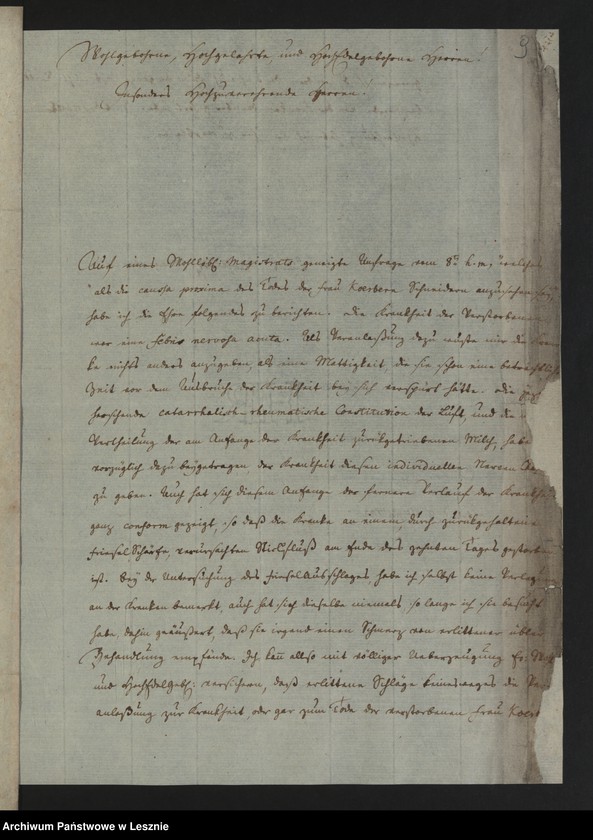 Wohlgebohrne, Hochgelahrte, und HochEdelgebohrne Herren!
Insonders Hochzuverehrende Herren!
9
Auf eines Wohllöbl: Magistrats geneigte Umfrage vom 8ᵗ h. m., welches
als die causa proxima des Todes der Frau Koerbern Schneidern anzusehen sey,
habe ich die Ehre folgendes zu berichten. Die Krankheit der Verstorbenen
war eine febris nervosa acuta. Als Veranlaßung dazu wußte mir die Kran-
ke nichts anders anzugeben, als eine Mattigkeit, die sie schon eine beträchtliche
Zeit vor dem Ausbruche der Krankheit bey sich verspürt hatte. Die
herschende catarrhalisch-rheumatische Constitution der Luft, und die
Vertheilung der am Anfange der Krankheit zurückgetriebenen Milch, haben
vorzüglich dazu beygetragen, der Krankheit diesen individuellen Nerven
zu geben. Auch hat sich diesem Anfange der fernere Verlauf der Krankheit
ganz conform gezeigt, so daß die Kranke an einem durch zurückgehaltene
Friesel Schärfe, verursachten Stickfluß am Ende des zehnten Tages gestorben
ist. Bey der Untersuchung des Frieselausschlages habe ich selbst keine
an der Kranken bemerkt, auch hat sich dieselbe niemals so lange ich sie besucht
habe, dahin geäußert, daß sie irgend einen Schmerz von erlittener übler
Behandlung empfände. Ich kann also mit völliger Ueberzeugung Ew:
und HochEdelgeb: versichern, daß erlittene Schläge keinesweges die Ver-
anlaßung zur Krankheit, oder gar zum Tode der verstorbenen Frau Koer
Archiwum Państwowe w Lesznie